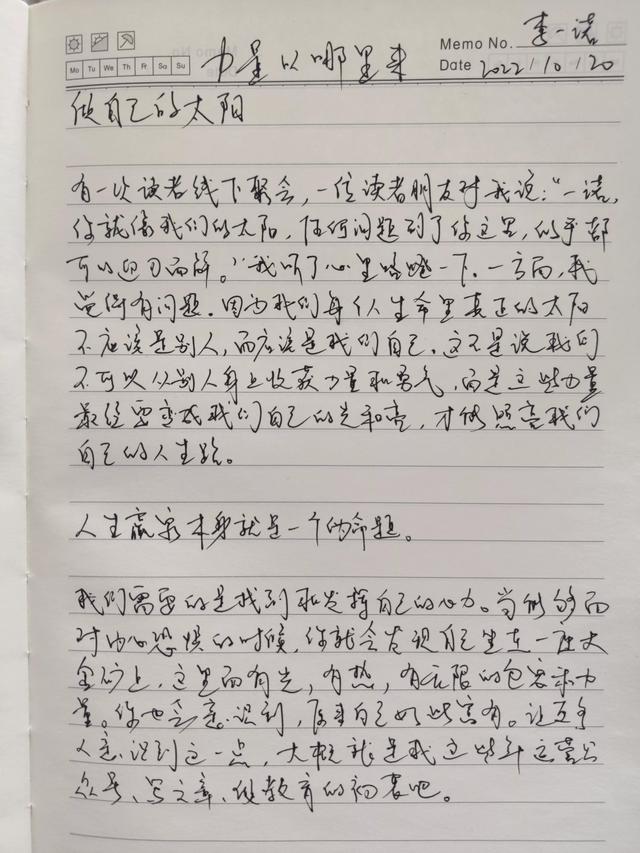 Memo No. 李一诺
Mo Tu We Th Fr Sa Su
力量从哪里来
Date 2022/10/20
做自己的太阳
有一次读者线下聚会,一位读者朋友对我说:"一诺,
你就像我们的太阳,任何问题到了你这里,似乎都
可以迎刃而解。"我听了心里咯噔一下.一方面,我
觉得有问题.因为我们每个人生命里真正的太阳
不应该是别人,而应该是我们自己.这不是说我们
不可以从别人身上收获力量和勇气,而是这些力量
最终要变成我们自己的光和亮,才能照亮我们
自己的人生路。
人生赢家本身就是一个伪命题。
我们需要的是找到和发挥自己的心力。当能够面
对内心恐惧的时候,你就会发现自己坐在一座大
金矿上,这里面有光,有热,有无限的包容和力
量。你也会意识到,原来自己如此富有。让更多
人意识到这一点,大概就是我这些年运营公
众号、写文章、做教育的初衷吧。